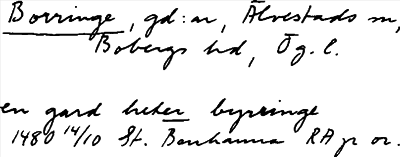 Borringe, gd:ar, Älvestads sn,
Bobergs hd, Ög. l.
en gard heter byrringe
1480 14/10 St. Bonhanna RA p or.